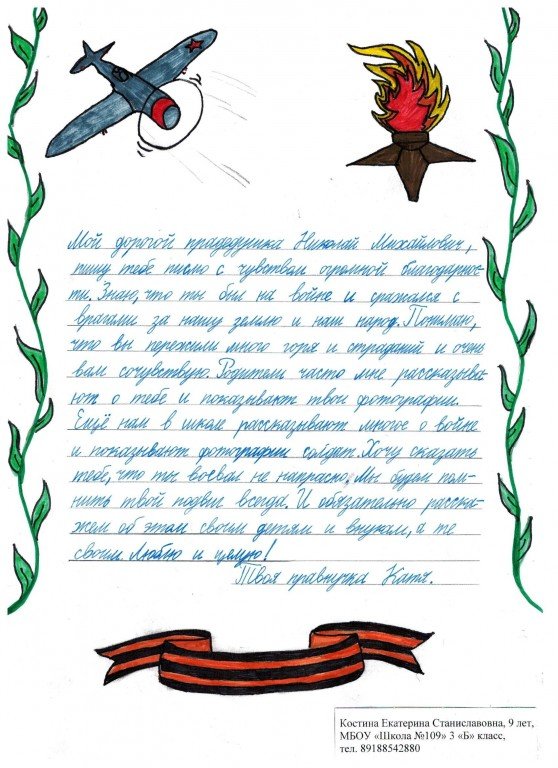 Мой дорогой прадедушка Николай Михайлович,
пишу тебе писмо с чувством огромной благодарнос-
ти. Знаю, что ты был на войне и сражался с
врагами за нашу землю и наш народ. Понимаю,
что вы пережили много горя и страданий и очень
вам сочувствую. Родители часто мне рассказыва-
ют о тебе и показывают твои фотографии.
Ещё нам в школе рассказывают многое о войне
и показывают фотографии солдат. Хочу сказать
тебе, что ты воевал не напрасно. Мы будем пом-
нить твой подвиг всегда. И обязательно расска-
жем об этом своим детям и внукам, а те
своим. Люблю и целую!
Твоя правнучка Катя.
Костина Екатерина Станиславовна, 9 лет,
МБОУ «Школа №109» 3 «Б» класс,
тел. 89188542880